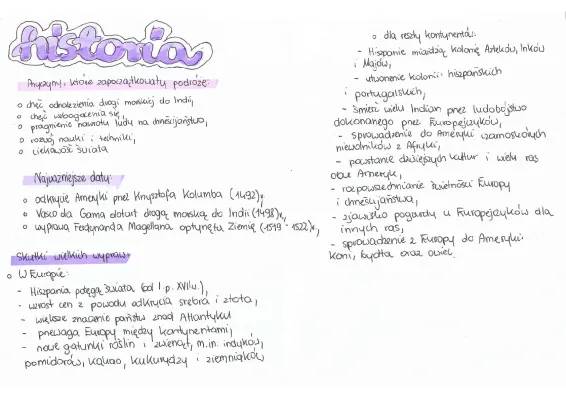 historia
Przyczyny, które zapoczątkowały podróże:
o chęć odnalezienia drogi morskiej do Indii,
o chęć wzbogacenia się,
o pragnienie nawrotu ludy na chrześcijaństwo,
o rozwój nauki i techniki,
o ciekawość świata
Najważniejsze daty:
o odkrycie Ameryki przez Krzysztofa Kolumba (1492),
o Vasco da Gama dotarł drogą morską do Indii (1498),
o wyprawa Ferdynanda Magellana opłynęła Ziemię (1519 - 1522),
Skutki wielkich wypraw:
o W Europie:
- Hiszpania potęgą świata (od I p. XVI w.),
- wzrost cen z powodu odkrycia srebra i złota,
- większe znaczenie państw znad Atlantyku
- przewaga Europy między kontynentami,
- nowe gatunki roślin i zwierząt, m.in. indyków,
pomidorów, kakao, kukurydzy i ziemniaków
o dla reszty kontynentów:
- Hiszpanie miażdżą kolonię Azteków, Inków
i Majów,
- utworzenie kolonii hiszpańskich
i portugalskich,
- śmierć wielu Indian przez ludobójstwo
dokonanego przez Europejczyków,
- sprowadzenie do Ameryki czarnoskórych
niewolników z Afryki,
- powstanie dzisiejszych kultur i wielu ras
obu Ameryk,
- rozpowszechnianie świetności Europy
i chrześcijaństwa,
- zjawisko pogardy u Europejczyków dla
innych ras,
- sprowadzenie z Europy do Ameryki
koni, bydła oraz owiec.